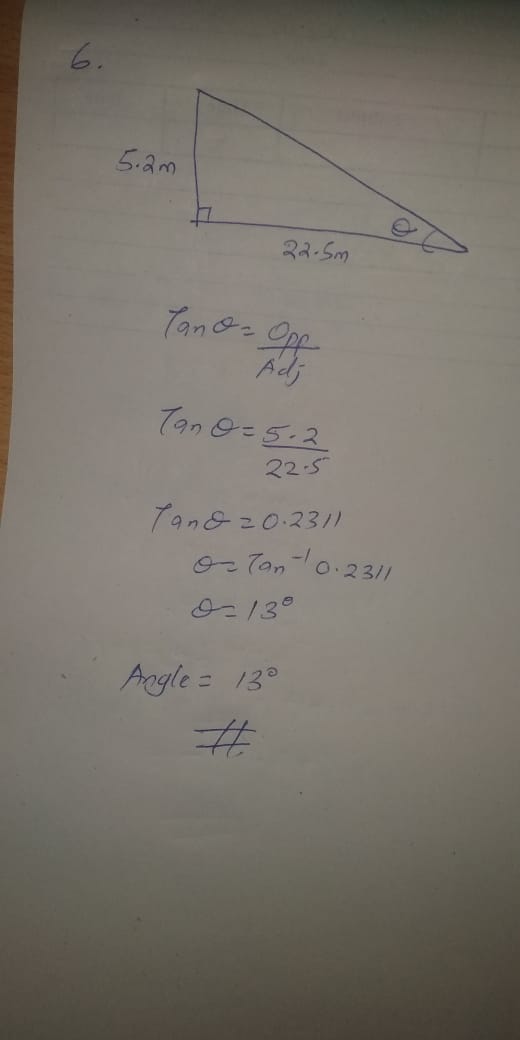 6.
5.2m
θ
22.5m
Tan θ = Opp
Adj
Tan θ = 5.2
22.5
Tan θ = 0.2311
θ = Tan⁻¹ 0.2311
θ = 13°
Angle = 13°